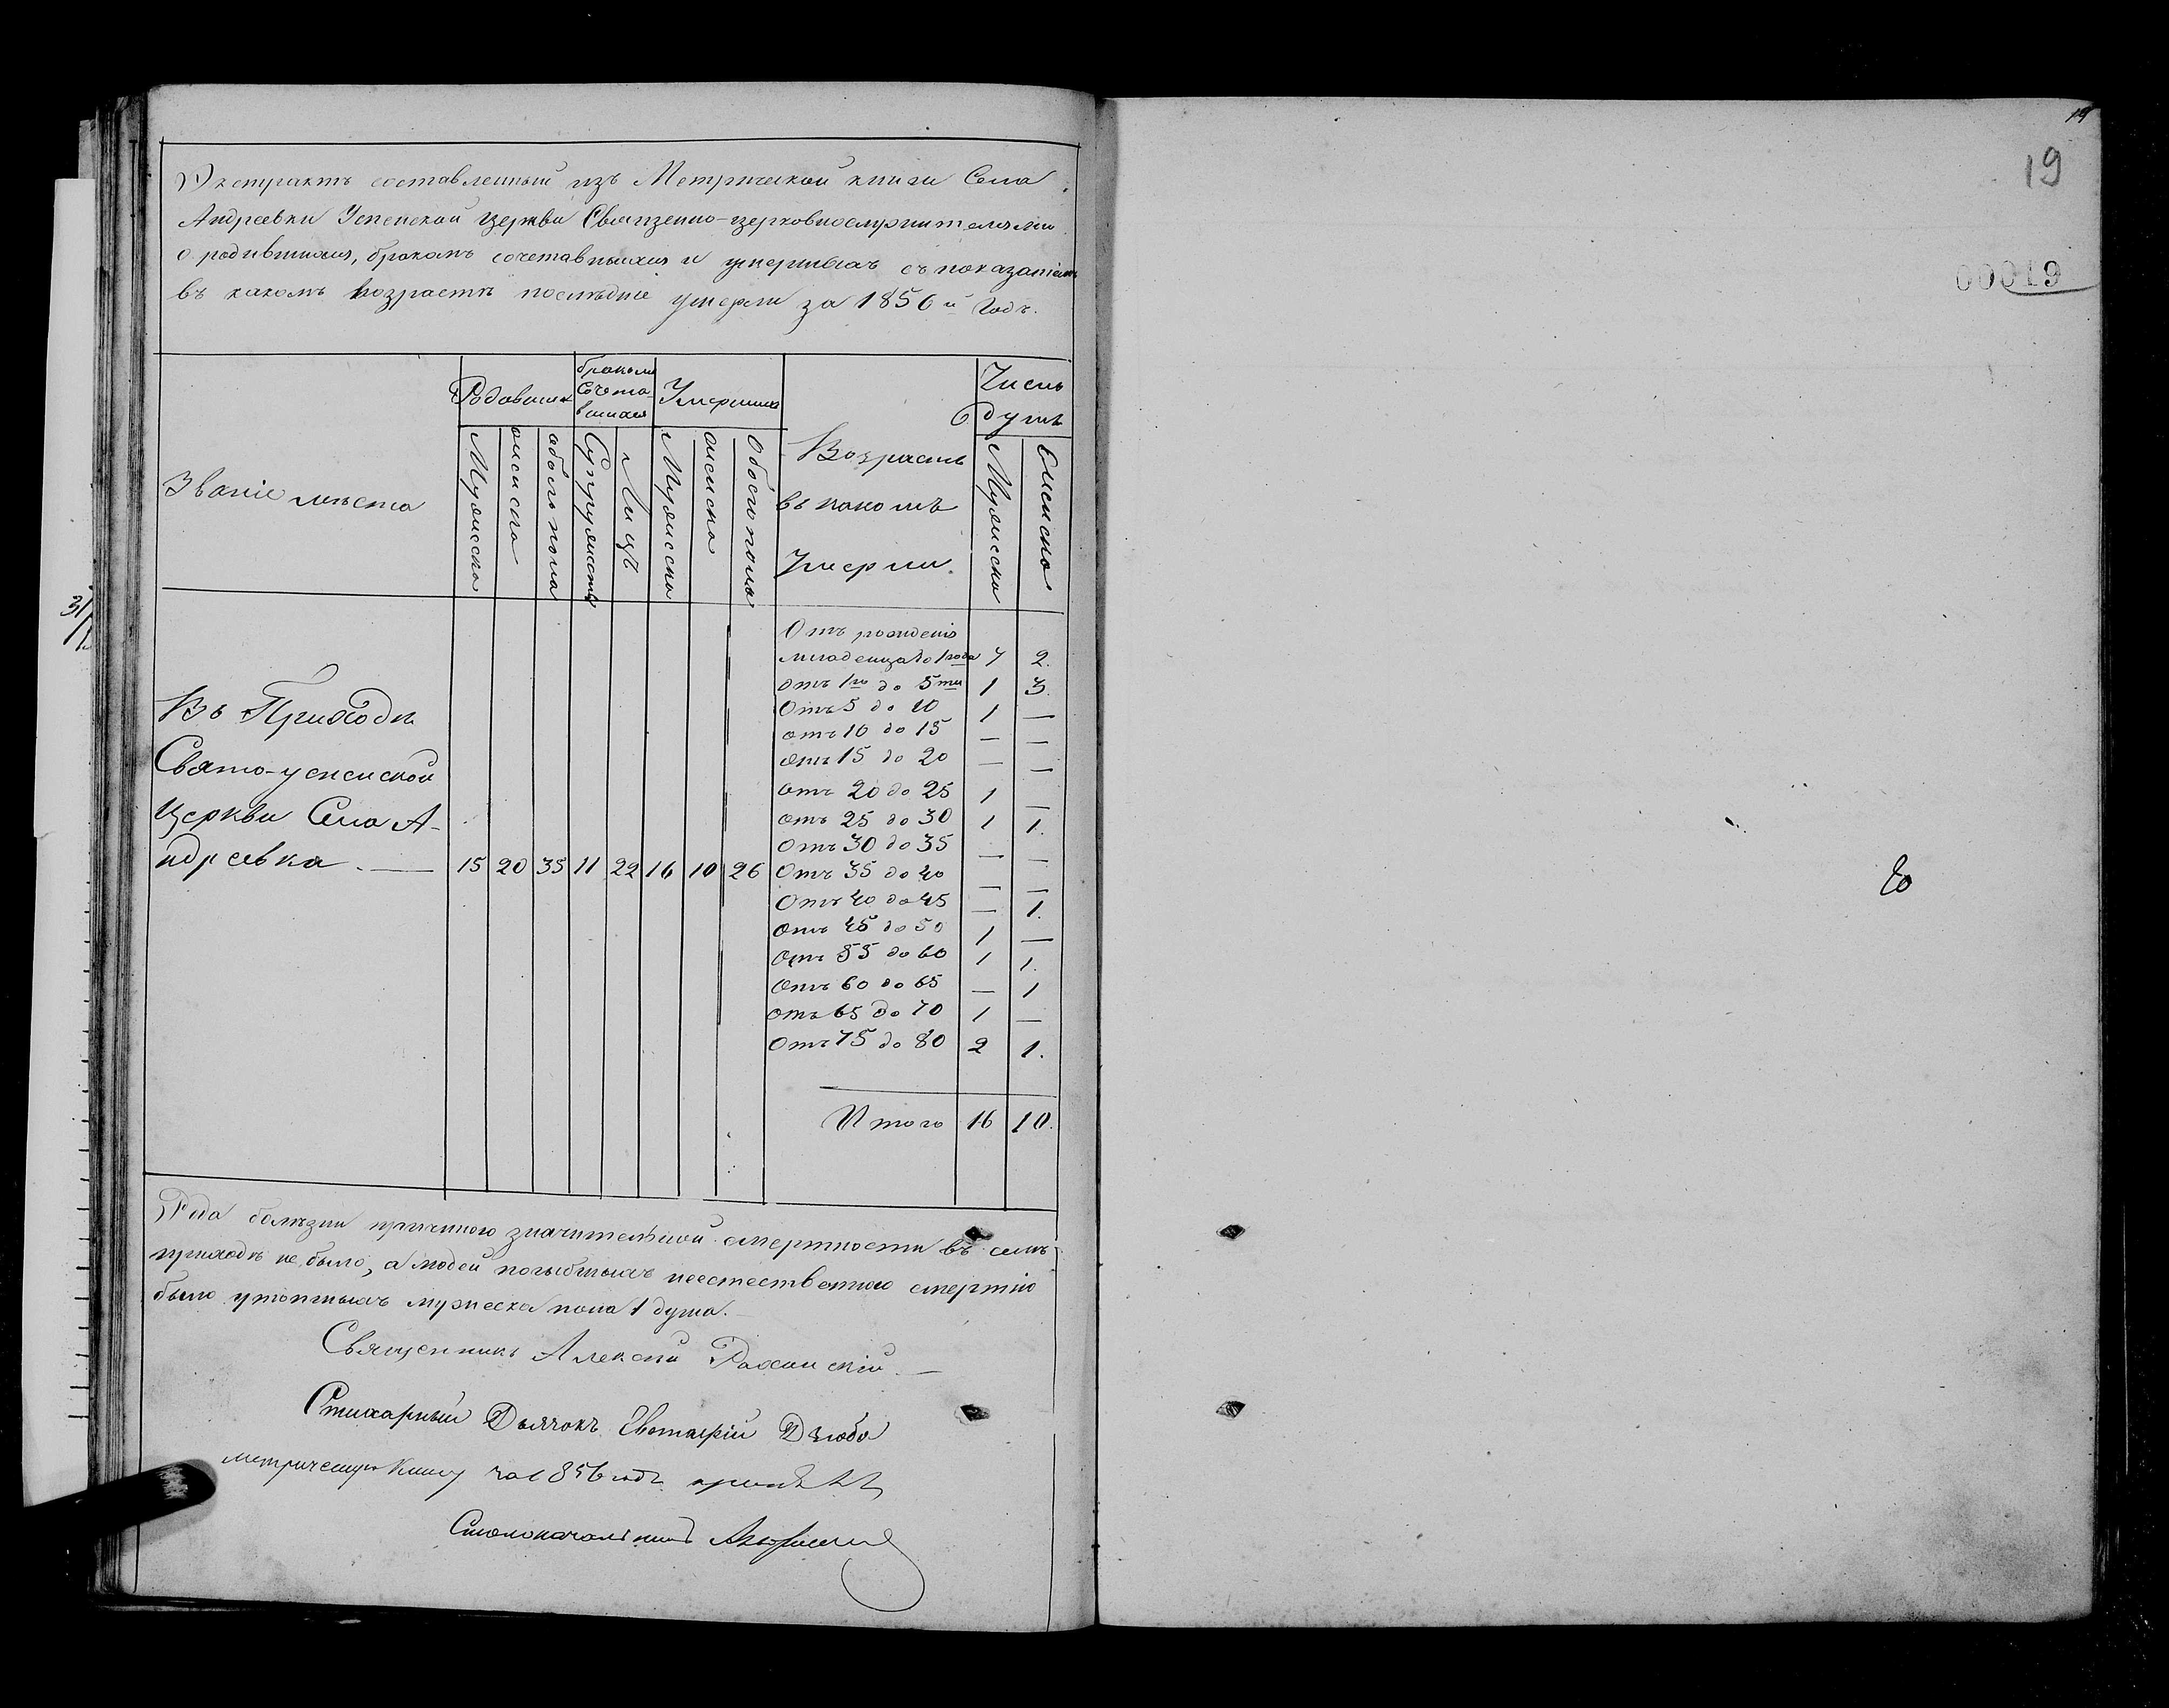 Экстрактъ составленный изъ Метрической книги Села
Андреевки Успенской церкви Священно-церковнослужителями
о родившихся, бракомъ сочетавшихся и умершихъ съ показаніемъ
въ какомъ возрастѣ послѣдніе умерли за 1856й Годъ.
Званіе мѣста
Родившихся
бракомъ
Сочета-
вшихся
Умершихъ
Возрастъ
въ какомъ
Умерли.
Число
душъ
Мужеска
женска
обоего пола
Супружествъ
Лицъ
Мужеска
женска
Обоего пола
Мужеска
Женска
Въ Приходѣ
Свято-успенской
Церкви Села А-
ндреевка. — 15 20 35 11 22 16 10 26
Отъ рожденія
младенца до 1 года 7 2.
отъ 1го до 5ти 1 3.
Отъ 5 до 10 1 —
отъ 10 до 15 — —
отъ 15 до 20 — —
отъ 20 до 25 1 —
отъ 25 до 30 1 1.
Отъ 30 до 35 — —
Отъ 35 до 40 — —
Отъ 40 до 45 — 1.
отъ 45 до 50 1 —
отъ 55 до 60 1 1.
отъ 60 до 65 — 1
отъ 65 до 70 1 —
Отъ 75 до 80 2 1.
Итого 16 10.
Рода болѣзни причиною значительной смертности въ семъ
приходѣ не было, а людей погибшихъ неестественною смертію
было утопшихъ мужеска пола 1 душа.
Священникъ Алексѣй
Стихарный Дьячокъ Евстафій Дзюба
метрическую Книгу за 1856 годъ
Столоначальникъ
19
19
00019